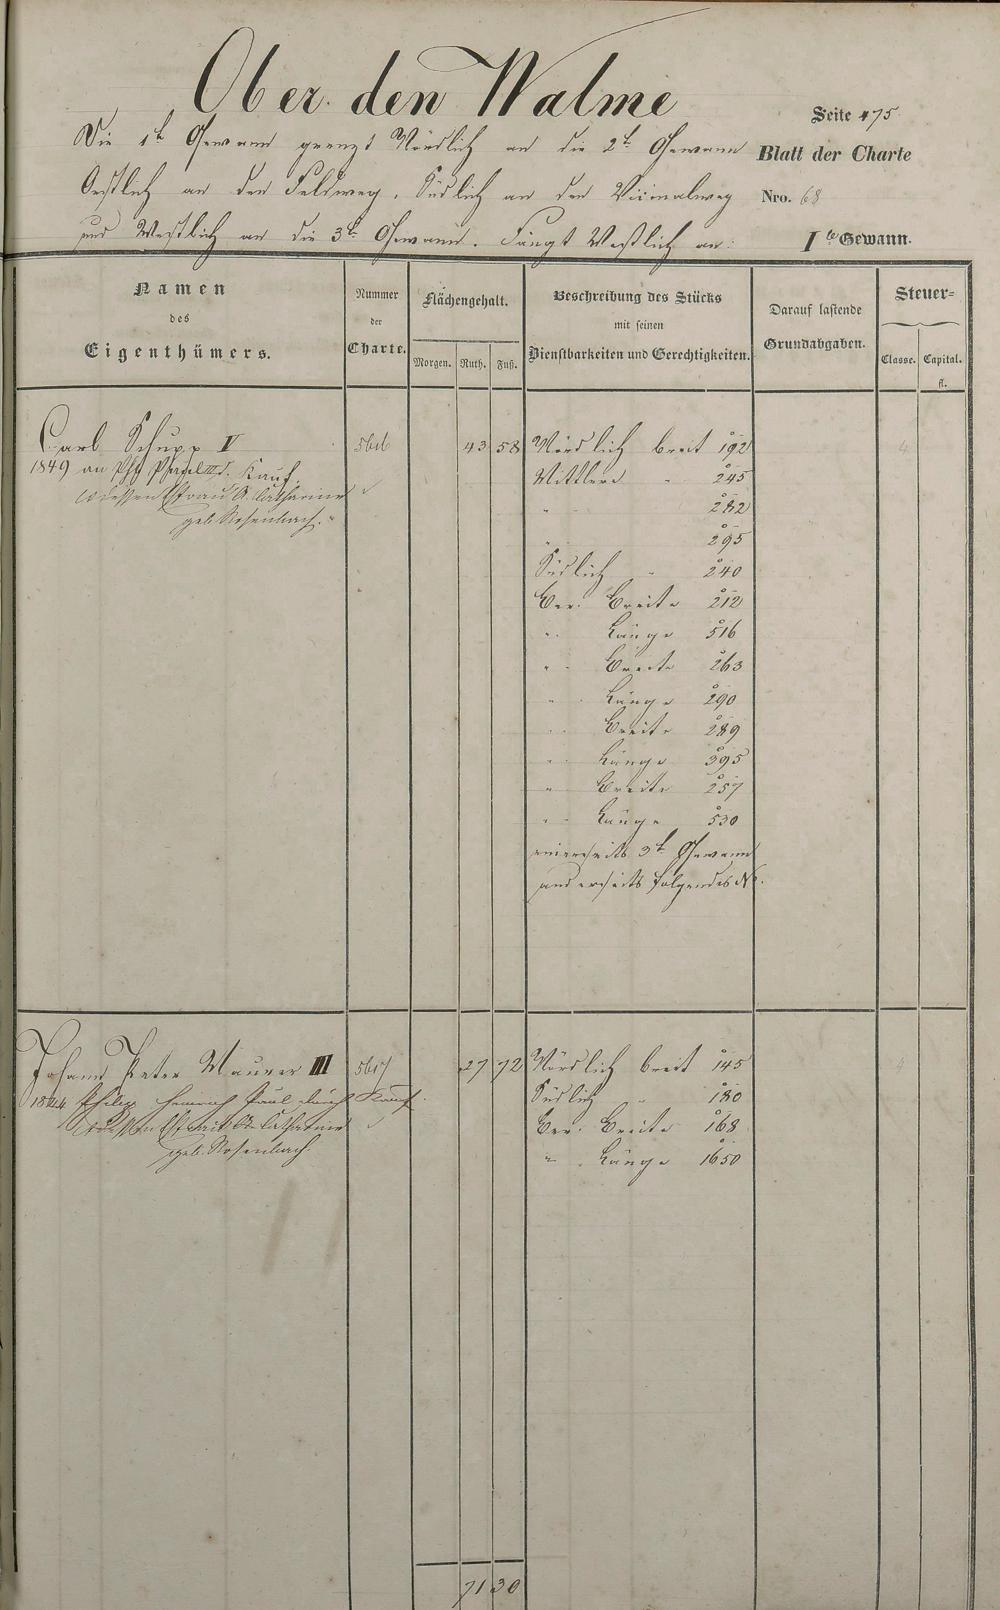 Ober den Walme
Seite 475
Die 1te Gewann grenzt Nördlich an die 2te Gewann
Blatt der Charte
Oestlich an den Feldweg, Südlich an den Viimalweg
Nro. 68
und Westlich an die 3te Gewann. Fängt Westlich an:
Ite Gewann.
Namen des Eigenthümers.
Nummer der Charte.
Flächengehalt.
Morgen. Ruth. Fuß.
Beschreibung des Stücks
mit seinen
Dienstbarkeiten und Gerechtigkeiten.
Darauf lastende
Grundabgaben.
Steuer-
Classe. Capital.
fl.
Carl Schupp V 5616 43 58 Nördlich breit 192 4
1849 an Kauf.
Mittlere " 245
dessen Ehefrau A. Catharine
geb. Rosenbach.
" " 282
" 295
Südlich " 240
Ver. Breite 212
" Länge 516
" " Breite 263
" " Länge 290
" " Breite 289
" Länge 395
" Breite 257
" " Länge 530
einerseits 3te Gewann
anderseits folgendes No.
Johann Peter Maurer III 5617 27 72 Nördlich breit 145 4
1844 Philipp Heinrich Paul durch Kauf.
Südlich " 180
dessen Ehefrau A. Catharine
Ver. Breite 168
geb. Rosenbach.
" Länge 1650
71 30